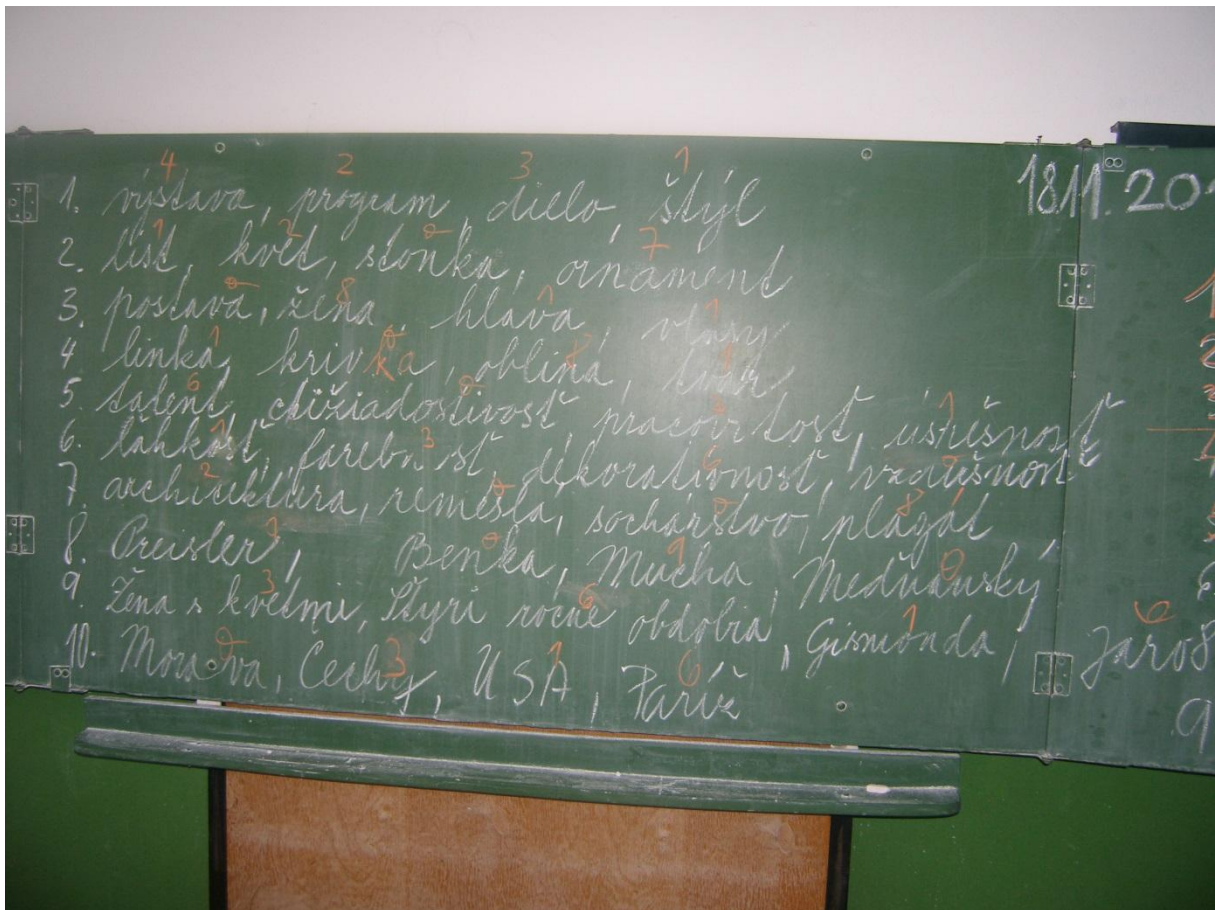 4 2 3 1
1. výstava, program, dielo, štýl 18.11.20
1 2 0 7
2. list, kvet, stonka, ornament
0 8 1 1
3. postava, žena, hlava, vlasy
1 0 8 1
4 linka, krivka, oblina, tvár
6 0
5. talent, ctižiadostivosť, pracovitosť, úslešnosť
3
6. ľahkosť, farebnosť, dekoratívnosť, vzdušnosť
2 0 0 8
7. architektúra, remeslá, sochárstvo, plagát
1 0 9 0
8. Preisler, Benka, Mucha, Medňanský
3 6 1
9. Žena s kvetmi, Štyri ročné obdobia, Gismonda, Jaro
0 3 1 6
10. Morava, Čechy, USA, Paríž